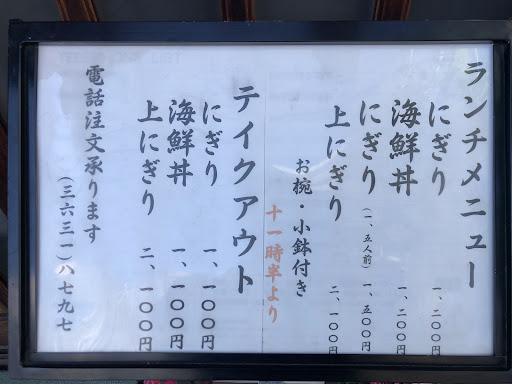 ランチメニュー
にぎり 一、二〇〇円
海鮮丼 一、二〇〇円
にぎり（一、五人前） 一、五〇〇円
上にぎり 二、一〇〇円
お椀・小鉢付き
十一時半より
テイクアウト
にぎり 一、一〇〇円
海鮮丼 一、一〇〇円
上にぎり 二、一〇〇円
電話注文承ります
（三六三一）八七九七